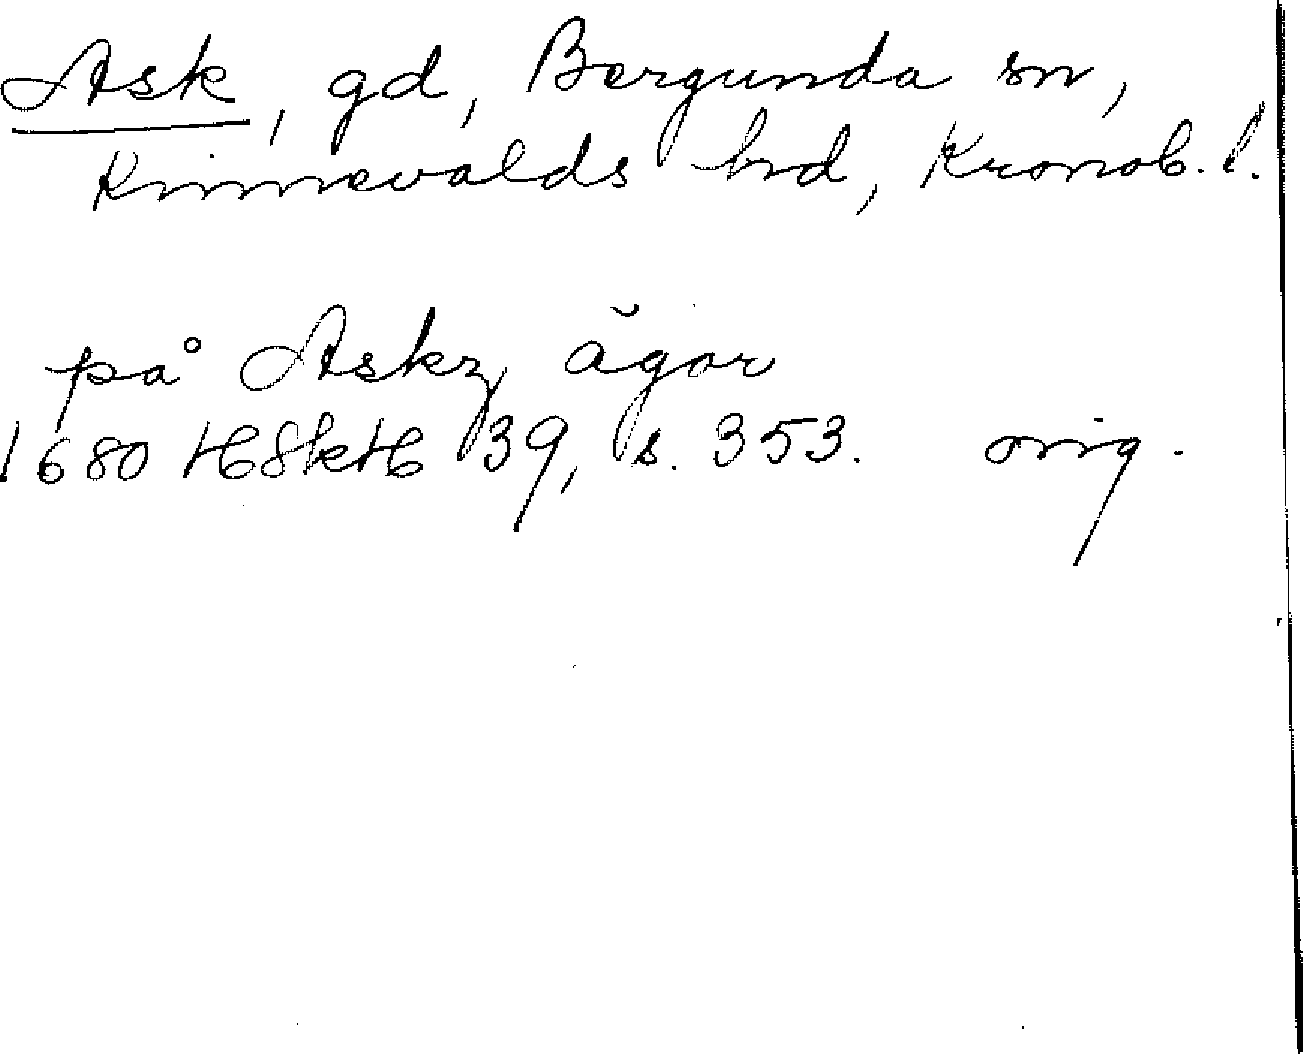 Ask, gd, Bergunda sn,
Kinnevalds hrd, Kronob. l.
på Askz ägor
1680 HSkH 39, s. 353. orig.